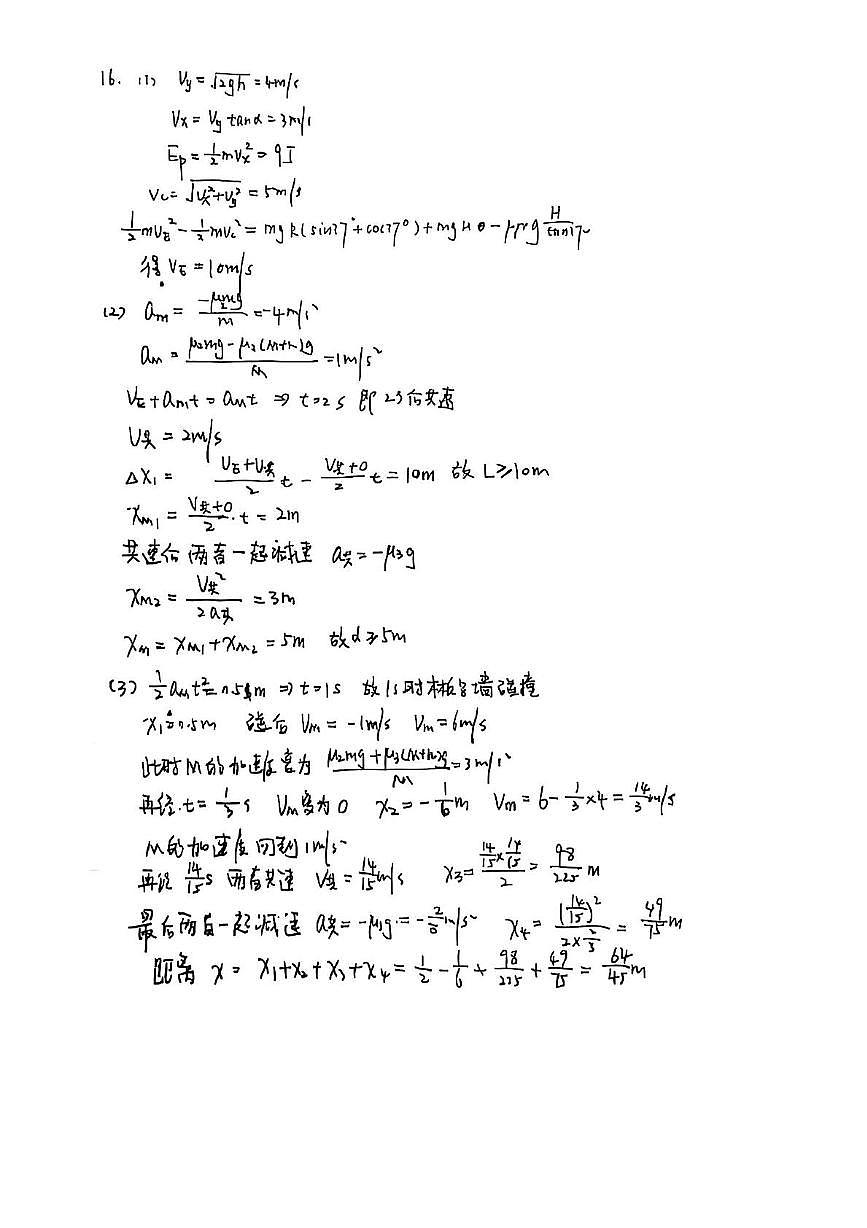 16. (1) Vy = √2gh = 4m/s
Vx = Vy tanα = 3m/s
Ep = ½mVx² = 9J
Vc = √Vx²+Vy² = 5m/s
½mVE² - ½mVc² = mgR(sin37°+cos37°) + mgH - μmg H/tan37°
得 VE = 10m/s
(2) am = -μ2mg/m = -4m/s²
aM = μ2mg-μ3(M+m)g/M = 1m/s²
VE+amt = aMt ⇒ t=2s 即2s后共速
V共 = 2m/s
ΔX1 = VE+V共/2 t - V共+0/2 t = 10m 故 L≥10m
XM1 = V共+0/2 · t = 2m
共速后两者一起减速 a共 = -μ3g
XM2 = V共²/2a共 = 3m
XM = XM1+XM2 = 5m 故d≥5m
(3) ½aMt² = 0.5m ⇒ t=1s 故1s时木板与墙碰撞
X1=0.5m 碰后 VM = -1m/s Vm=6m/s
此时M的加速度变为 μ2mg+μ3(M+m)g/M = 3m/s²
再经 t=1/3 s VM变为0 X2 = -1/6 m Vm = 6-1/3×4 = 14/3 m/s
M的加速度回到1m/s²
再经 14/15 s 两者共速 V共 = 14/15 m/s X3 = 14/15×14/15/2 = 98/225 m
最后两者一起减速 a共 = -μ3g = -2/3 m/s² X4 = (14/15)²/2×2/3 = 49/75 m
距离 X = X1+X2+X3+X4 = 1/2 - 1/6 + 98/225 + 49/75 = 64/45 m